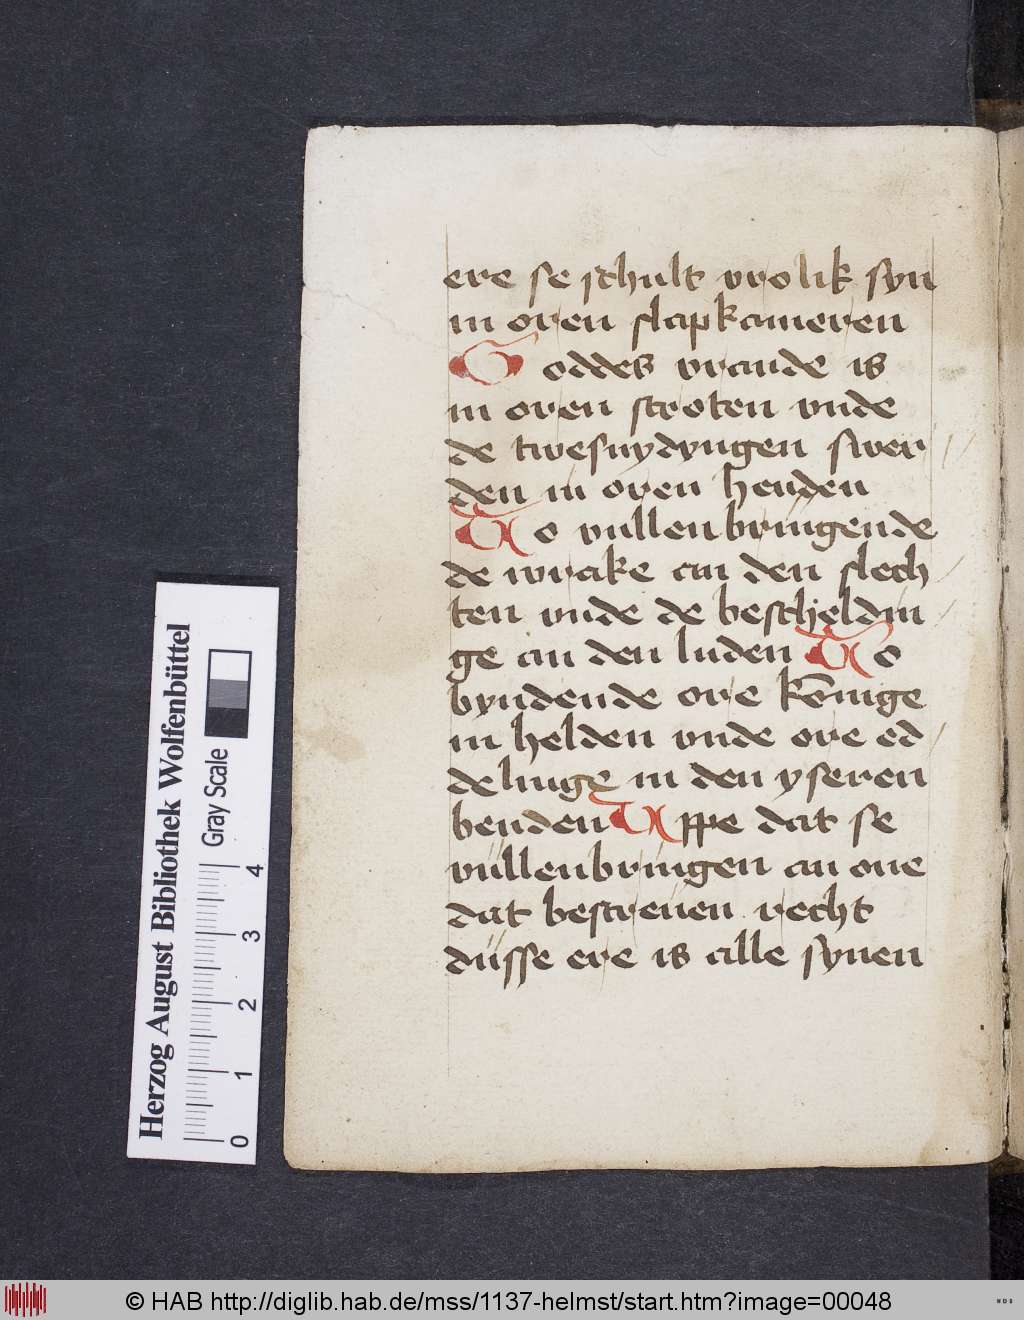 ere se schult vrolik syn
in oren slapkameren
Goddes vraude is
in oren stroten vnde
de twesnydyngen swer
den in oren henden
To vullenbringende
de wrake an den slech
ten vnde de bescheldin
ge an den luden To
byndende ore kônige
in helden vnde ore ed
delinge in den yseren
benden Uppe dat se
vullenbringen an one
dat bescreuen recht
düsse ere is alle synen
Herzog August Bibliothek Wolfenbüttel
Gray Scale
0 1 2 3 4
© HAB http://diglib.hab.de/mss/1137-helmst/start.htm?image=00048